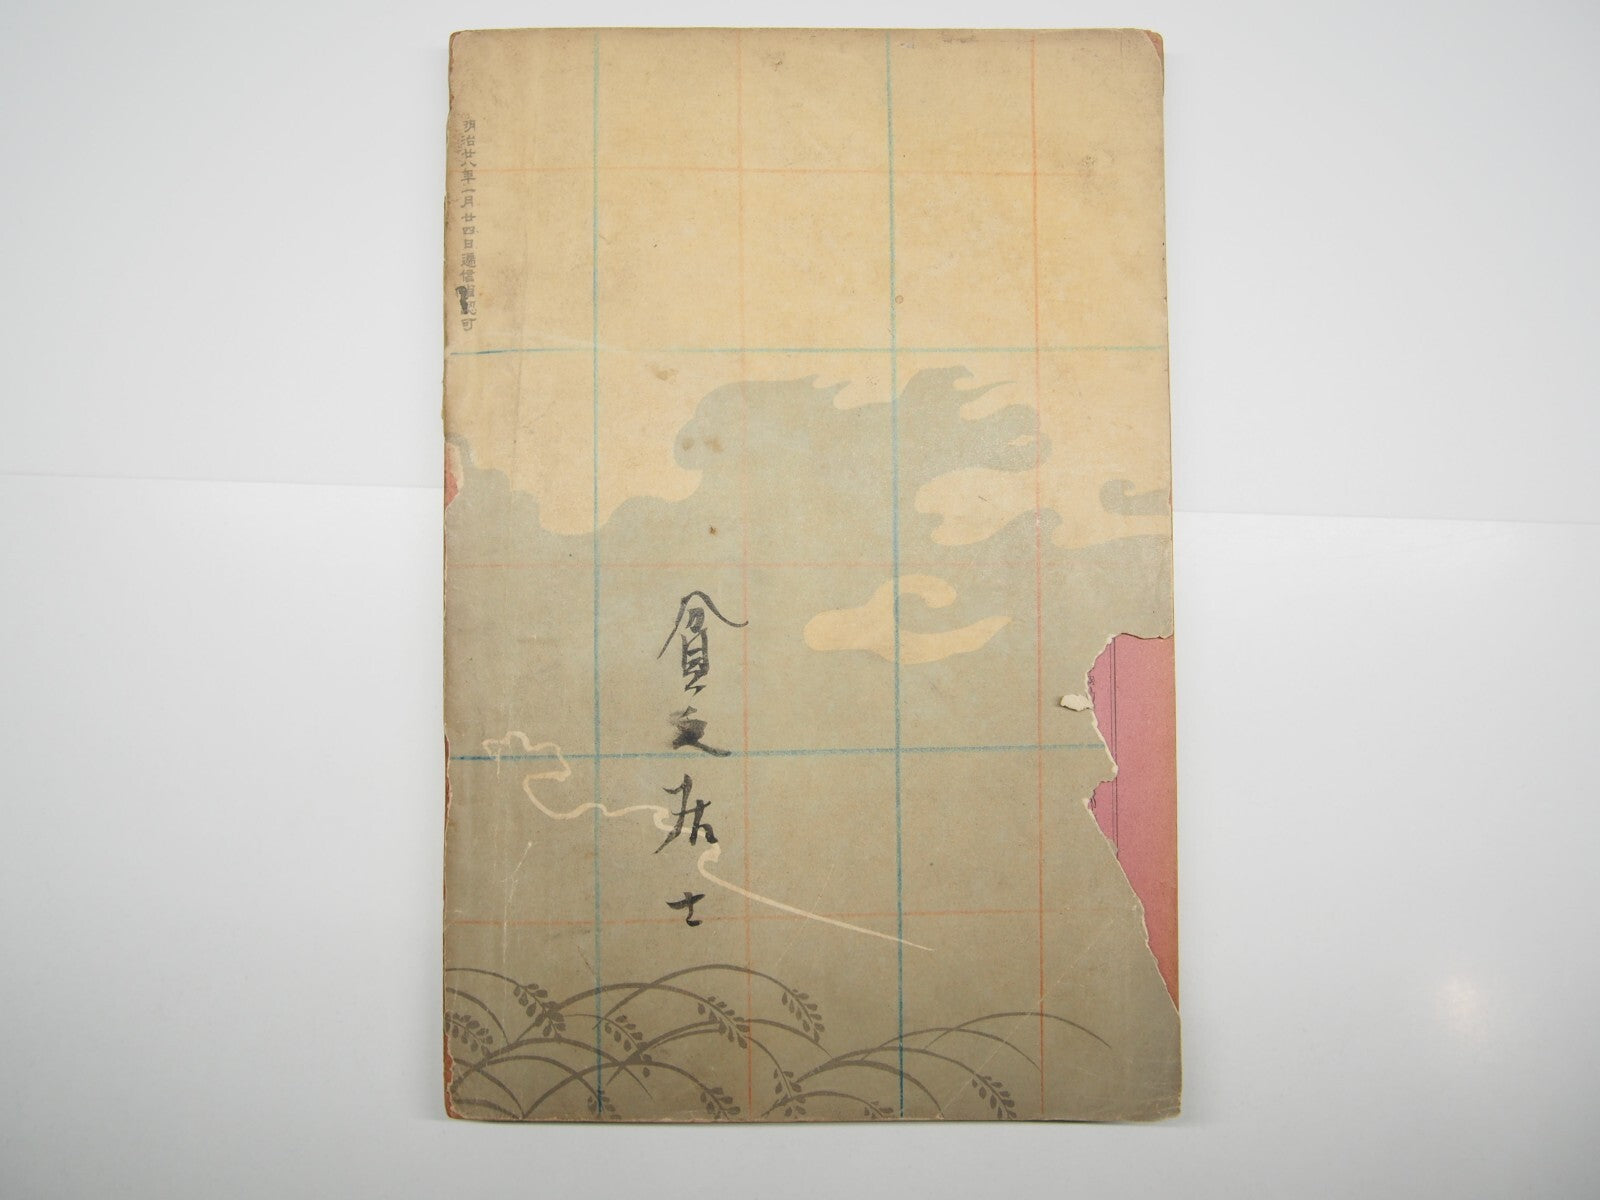 明治廿八年一月廿四日逓信省認可
貧文居士